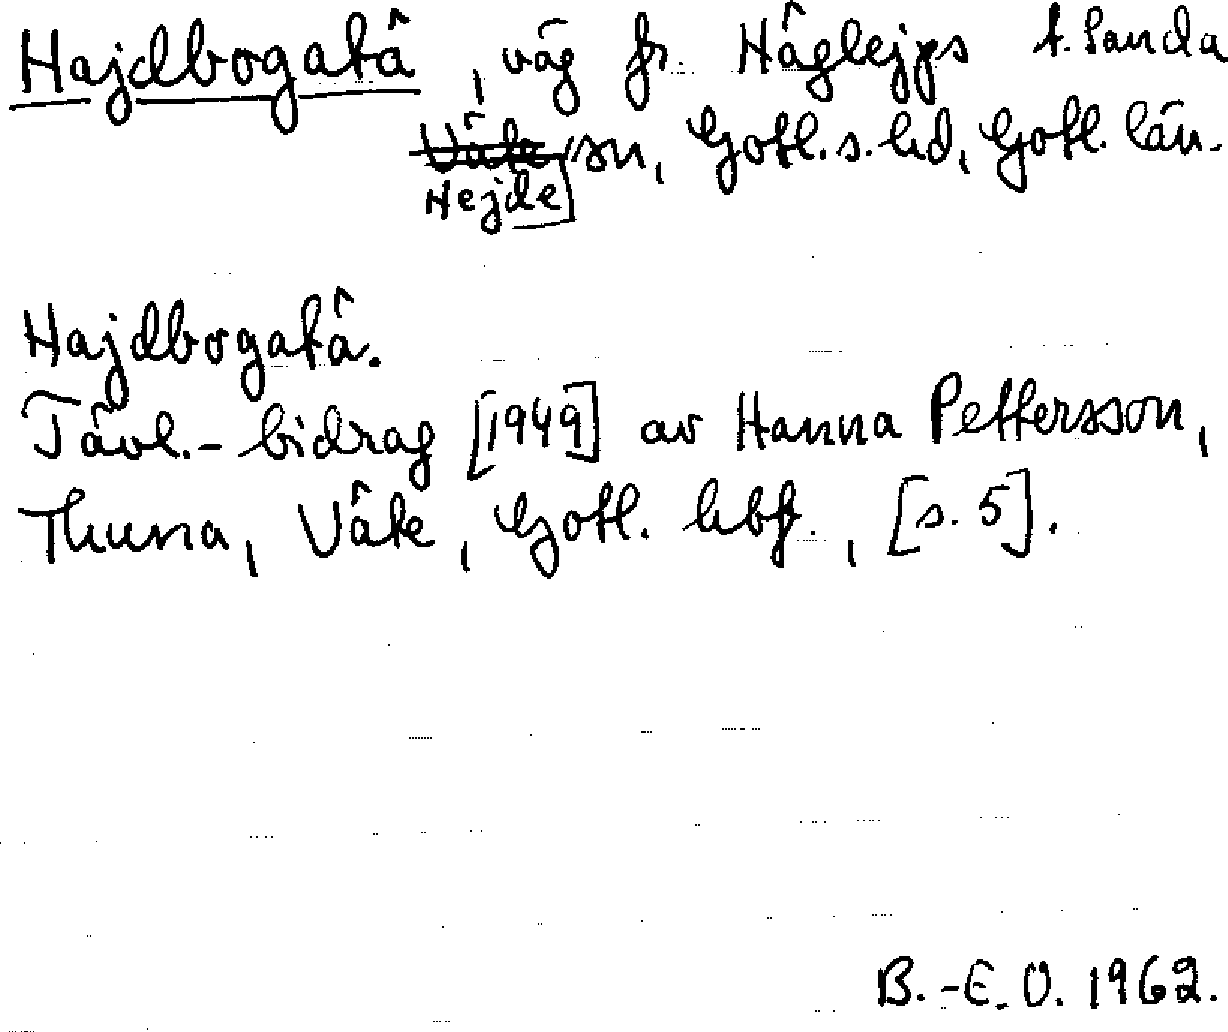 Hajdbogatâ, väg fr. Hâglejps t. Sanda
Väte sn, Gotl. s. hd, Gotl. län.
Hejde
Hajdbogatâ.
Tävl.-bidrag [1949] av Hanna Pettersson,
Thuna, Vâte, Gotl. hbf., [s. 5].
B.-E. O. 1962.